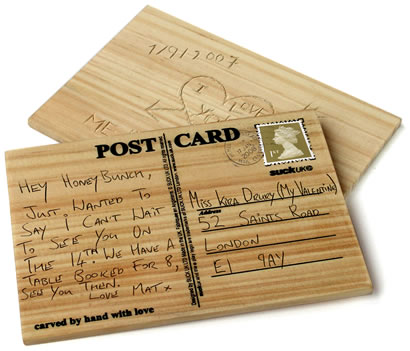 1/91-2007
I LOVE
YOU
ME
POST CARD
1ST
suckUK
HEY HONEYBUNCH,
JUST WANTED TO
SAY I CAN'T WAIT
TO SEE YOU ON
THE 14TH. WE HAVE A
TABLE BOOKED FOR 8,
SEE YOU THEN.
LOVE MAT X
MISS KIRA DRURY (MY VALENTINE)
Address
52 SAINTS ROAD
LONDON
E1 9AY
carved by hand with love